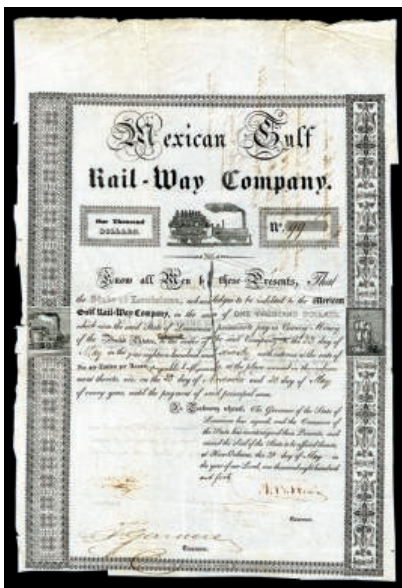 Mexican Gulf
Rail-Way Company.
One Thousand
DOLLARS.
No. 99
Know all Men by these Presents, That
the State of Louisiana, acknowledges to be indebted to the Mexican
Gulf Rail-Way Company, in the sum of ONE THOUSAND DOLLARS,
which sum the said State of Louisiana promises to pay in Current Money
of the United States, to the order of the said Company on the
May, in the year eighteen hundred and with interest at the rate of
Six per Centum per Annum, payable half yearly at the place named in the
ment hereto, viz. on the day of November and day of May
of every year, until the payment of said principal sum.
In Testimony whereof, The Governor of the State of
Louisiana has signed, and the Treasurer of
the State has countersigned these Presents, and
caused the Seal of the State to be affixed thereto,
at New-Orleans, this day of May in
the year of our Lord, one thousand eight hundred
and forty
Governor.
Treasurer.